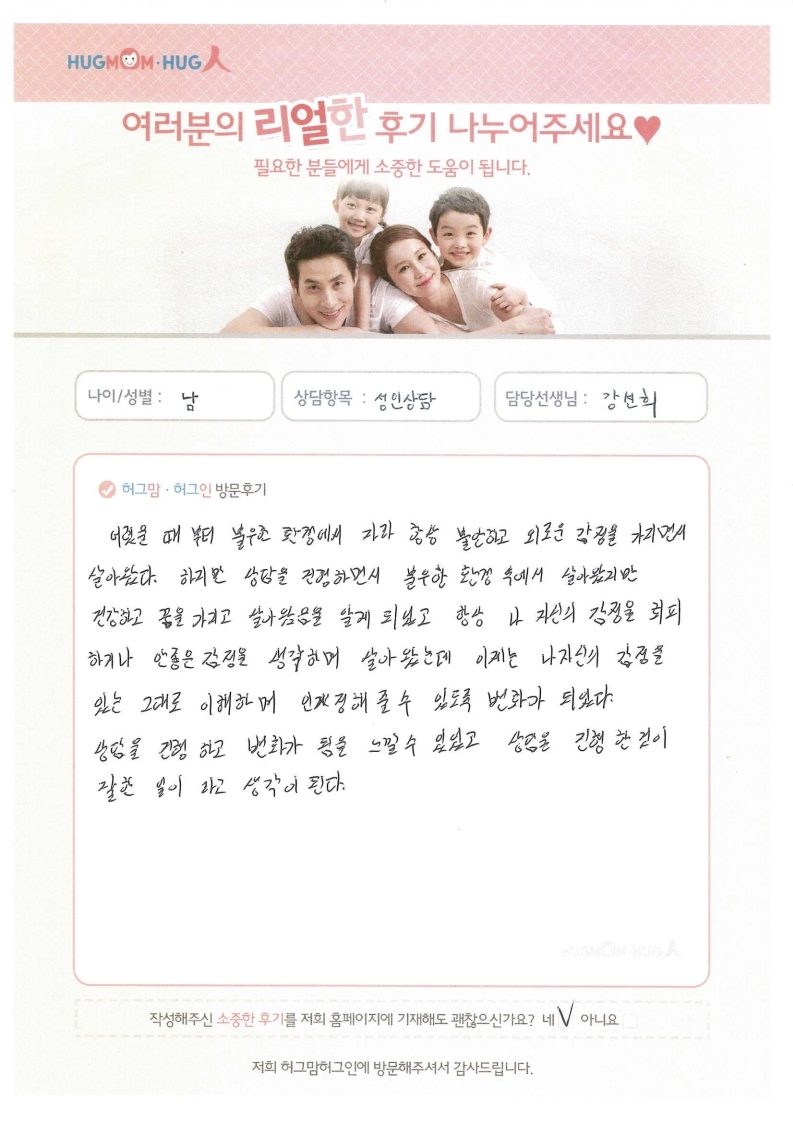 HUGMOM·HUG人
여러분의 리얼한 후기 나누어주세요♥
필요한 분들에게 소중한 도움이 됩니다.
나이/성별 : 남
상담항목 : 성인상담
담당선생님 : 강선희
허그맘·허그인 방문후기
어렸을 때 부터 불우한 환경에서 자라 항상 불안하고 외로운 감정을 가지면서
살아왔다. 하지만 상담을 진행하면서 불우한 환경 속에서 살아왔지만
건강하고 꿈을 가지고 살아왔음을 알게 되었고 항상 나 자신의 감정을 회피
하거나 안좋은 감정을 생각하며 살아왔는데 이제는 나자신의 감정을
있는 그대로 이해하며 인정해 줄 수 있도록 변화가 되었다.
상담을 진행 하고 변화가 됨을 느낄 수 있었고 상담을 진행 한 것이
잘한 일이 라고 생각이 된다.
HUGMOM·HUG人
작성해주신 소중한 후기를 저희 홈페이지에 기재해도 괜찮으신가요? 네 V 아니요
저희 허그맘허그인에 방문해주셔서 감사드립니다.